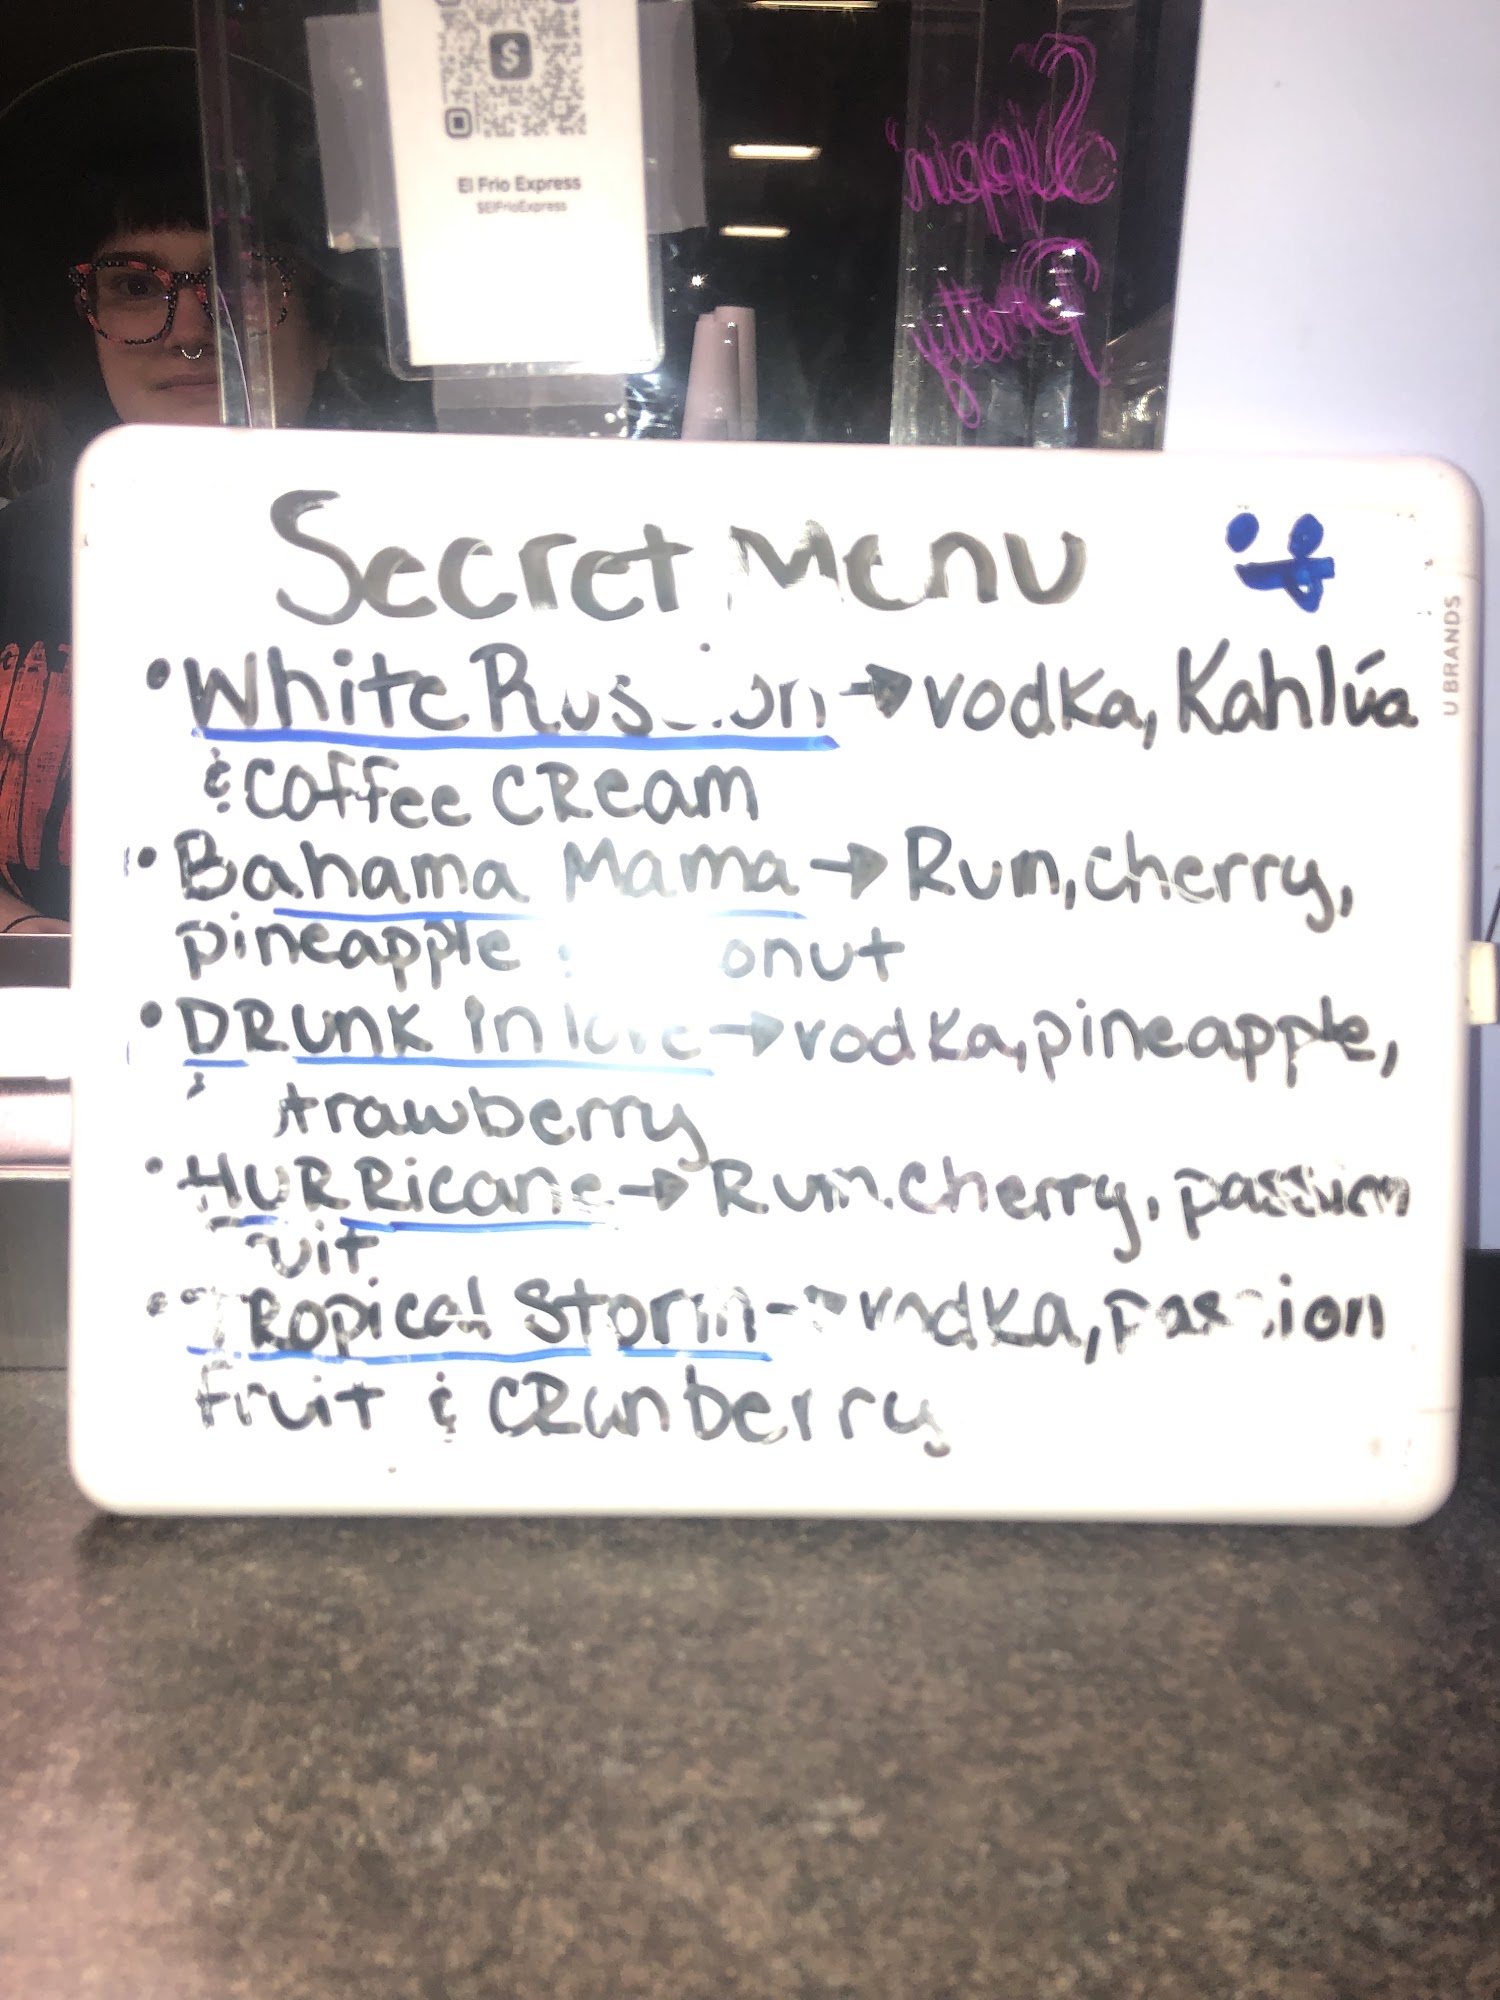 El Frio Express
$ElFrioExpress
Sippin'
Pretty
Secret Menu
U BRANDS
• White Russian → vodka, Kahlúa
& Coffee CReam
• Bahama Mama → Rum, cherry,
pineapple onut
• DRUNK in love → vodka, pineapple,
& trawberry
• HURRicane → Rum, cherry, passion
ruit
• TRopical Storm → vodka, passion
fruit & CRanberry